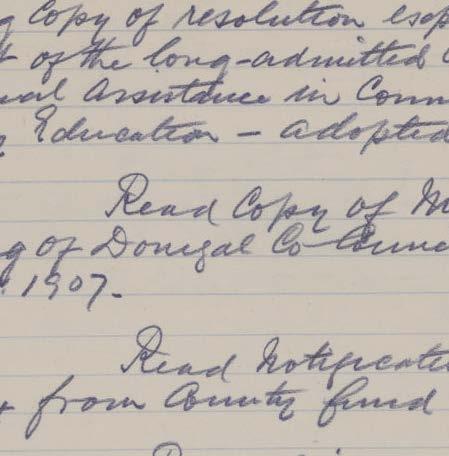 g Copy of resolution esp
t of the long-admitted
ual Assistance in Conn
Education - adopted
Read Copy of M
g of Donegal Co Counc
1907.
Read Notificati
from County fund